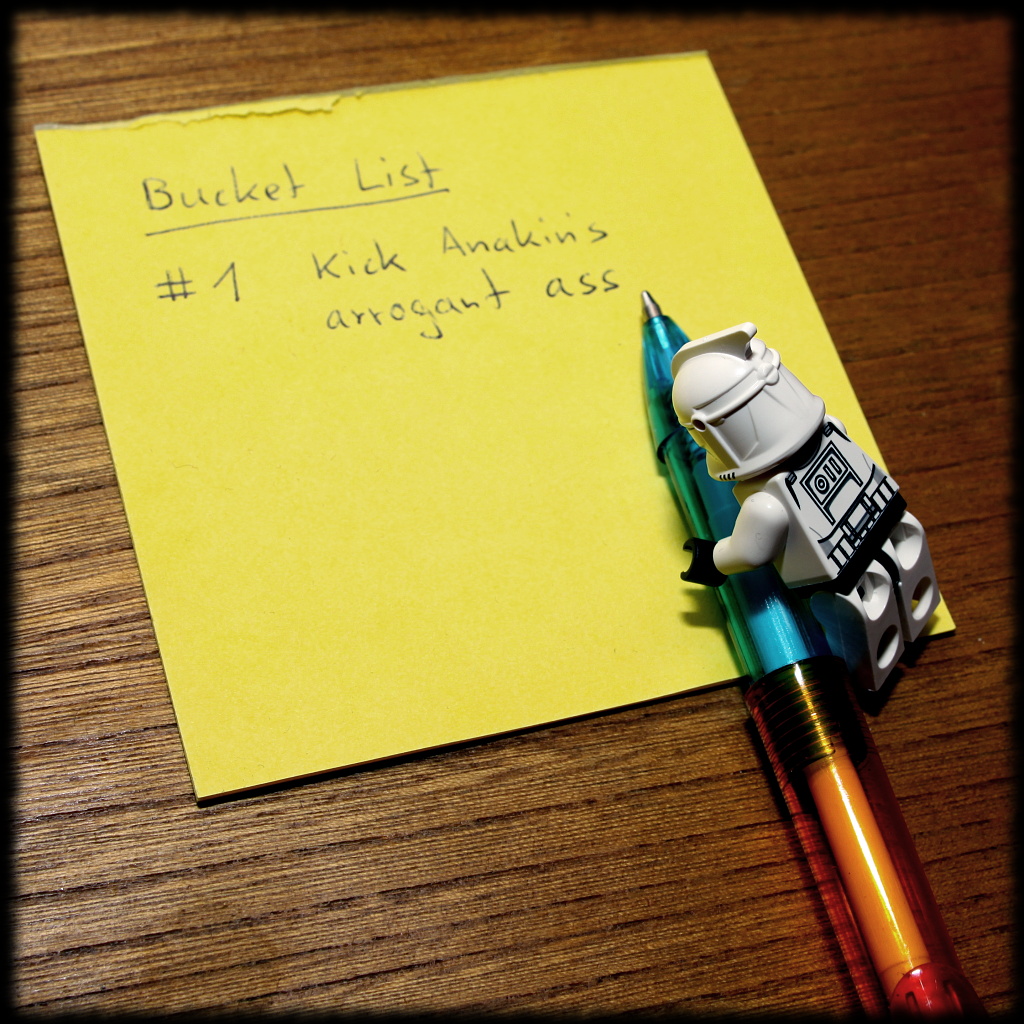 Bucket List
#1 Kick Anakin's
arrogant ass